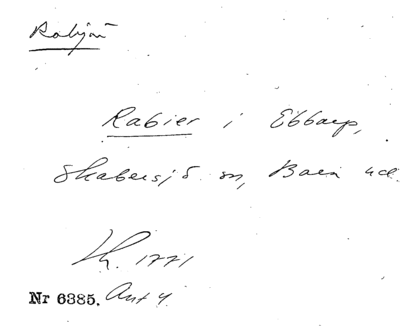 Rabjär
Rabier i Ebbarp,
Skabersjö sn, Bara hd.
Lh. 1771
Nr 6385. Ant 4.